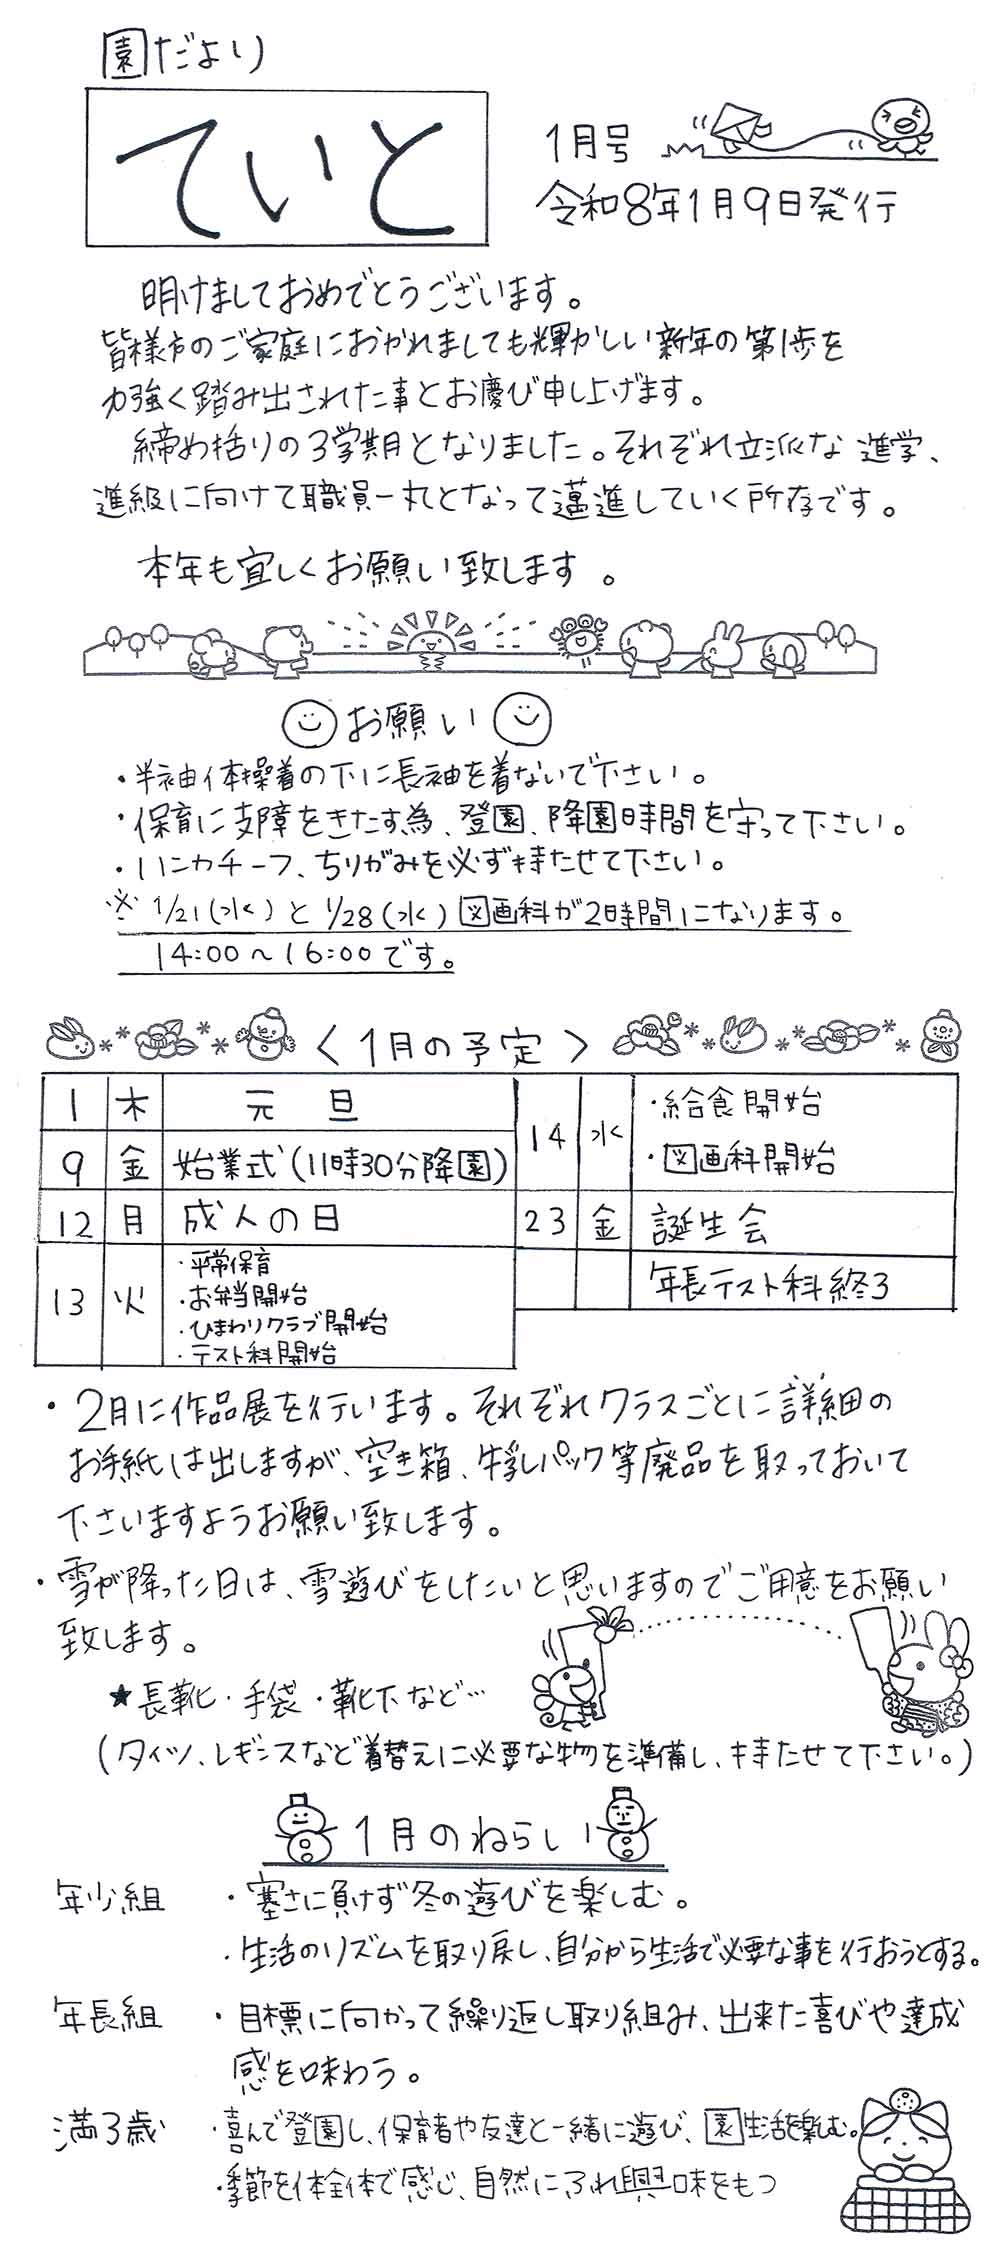 園だより
ていと
1月号
令和8年1月9日発行
明けましておめでとうございます。
皆様方のご家庭におかれましても輝かしい新年の第1歩を
力強く踏み出された事とお慶び申し上げます。
締め括りの3学期となりました。それぞれ立派な進学、
進級に向けて職員一丸となって邁進していく所存です。
本年も宜しくお願い致します。
お願い
・半袖体操着の下に長袖を着ないで下さい。
・保育に支障をきたす為、登園、降園時間を守って下さい。
・ハンカチーフ、ちりがみを必ず持たせて下さい。
※ 1/21(水)と1/28(水)図画科が2時間になります。
14:00～16:00です。
〈1月の予定〉
1 木 元旦
9 金 始業式(11時30分降園)
12 月 成人の日
13 火 ・平常保育
・お弁当開始
・ひまわりクラブ開始
・テスト科開始
14 水 ・給食開始
・図画科開始
23 金 誕生会
年長テスト科終3
・2月に作品展を行います。それぞれクラスごとに詳細の
お手紙は出しますが、空き箱、牛乳パック等廃品を取っておいて
下さいますようお願い致します。
・雪が降った日は、雪遊びをしたいと思いますのでご用意をお願い
致します。
★長靴・手袋・靴下など…
(タイツ、レギンスなど着替えに必要な物を準備し、持たせて下さい。)
1月のねらい
年少組 ・寒さに負けず冬の遊びを楽しむ。
・生活のリズムを取り戻し、自分から生活で必要な事を行おうとする。
年長組 ・目標に向かって繰り返し取り組み、出来た喜びや達成
感を味わう。
満3歳 ・喜んで登園し、保育者や友達と一緒に遊び、園生活を楽しむ。
・季節を体全体で感じ、自然にふれ興味をもつ